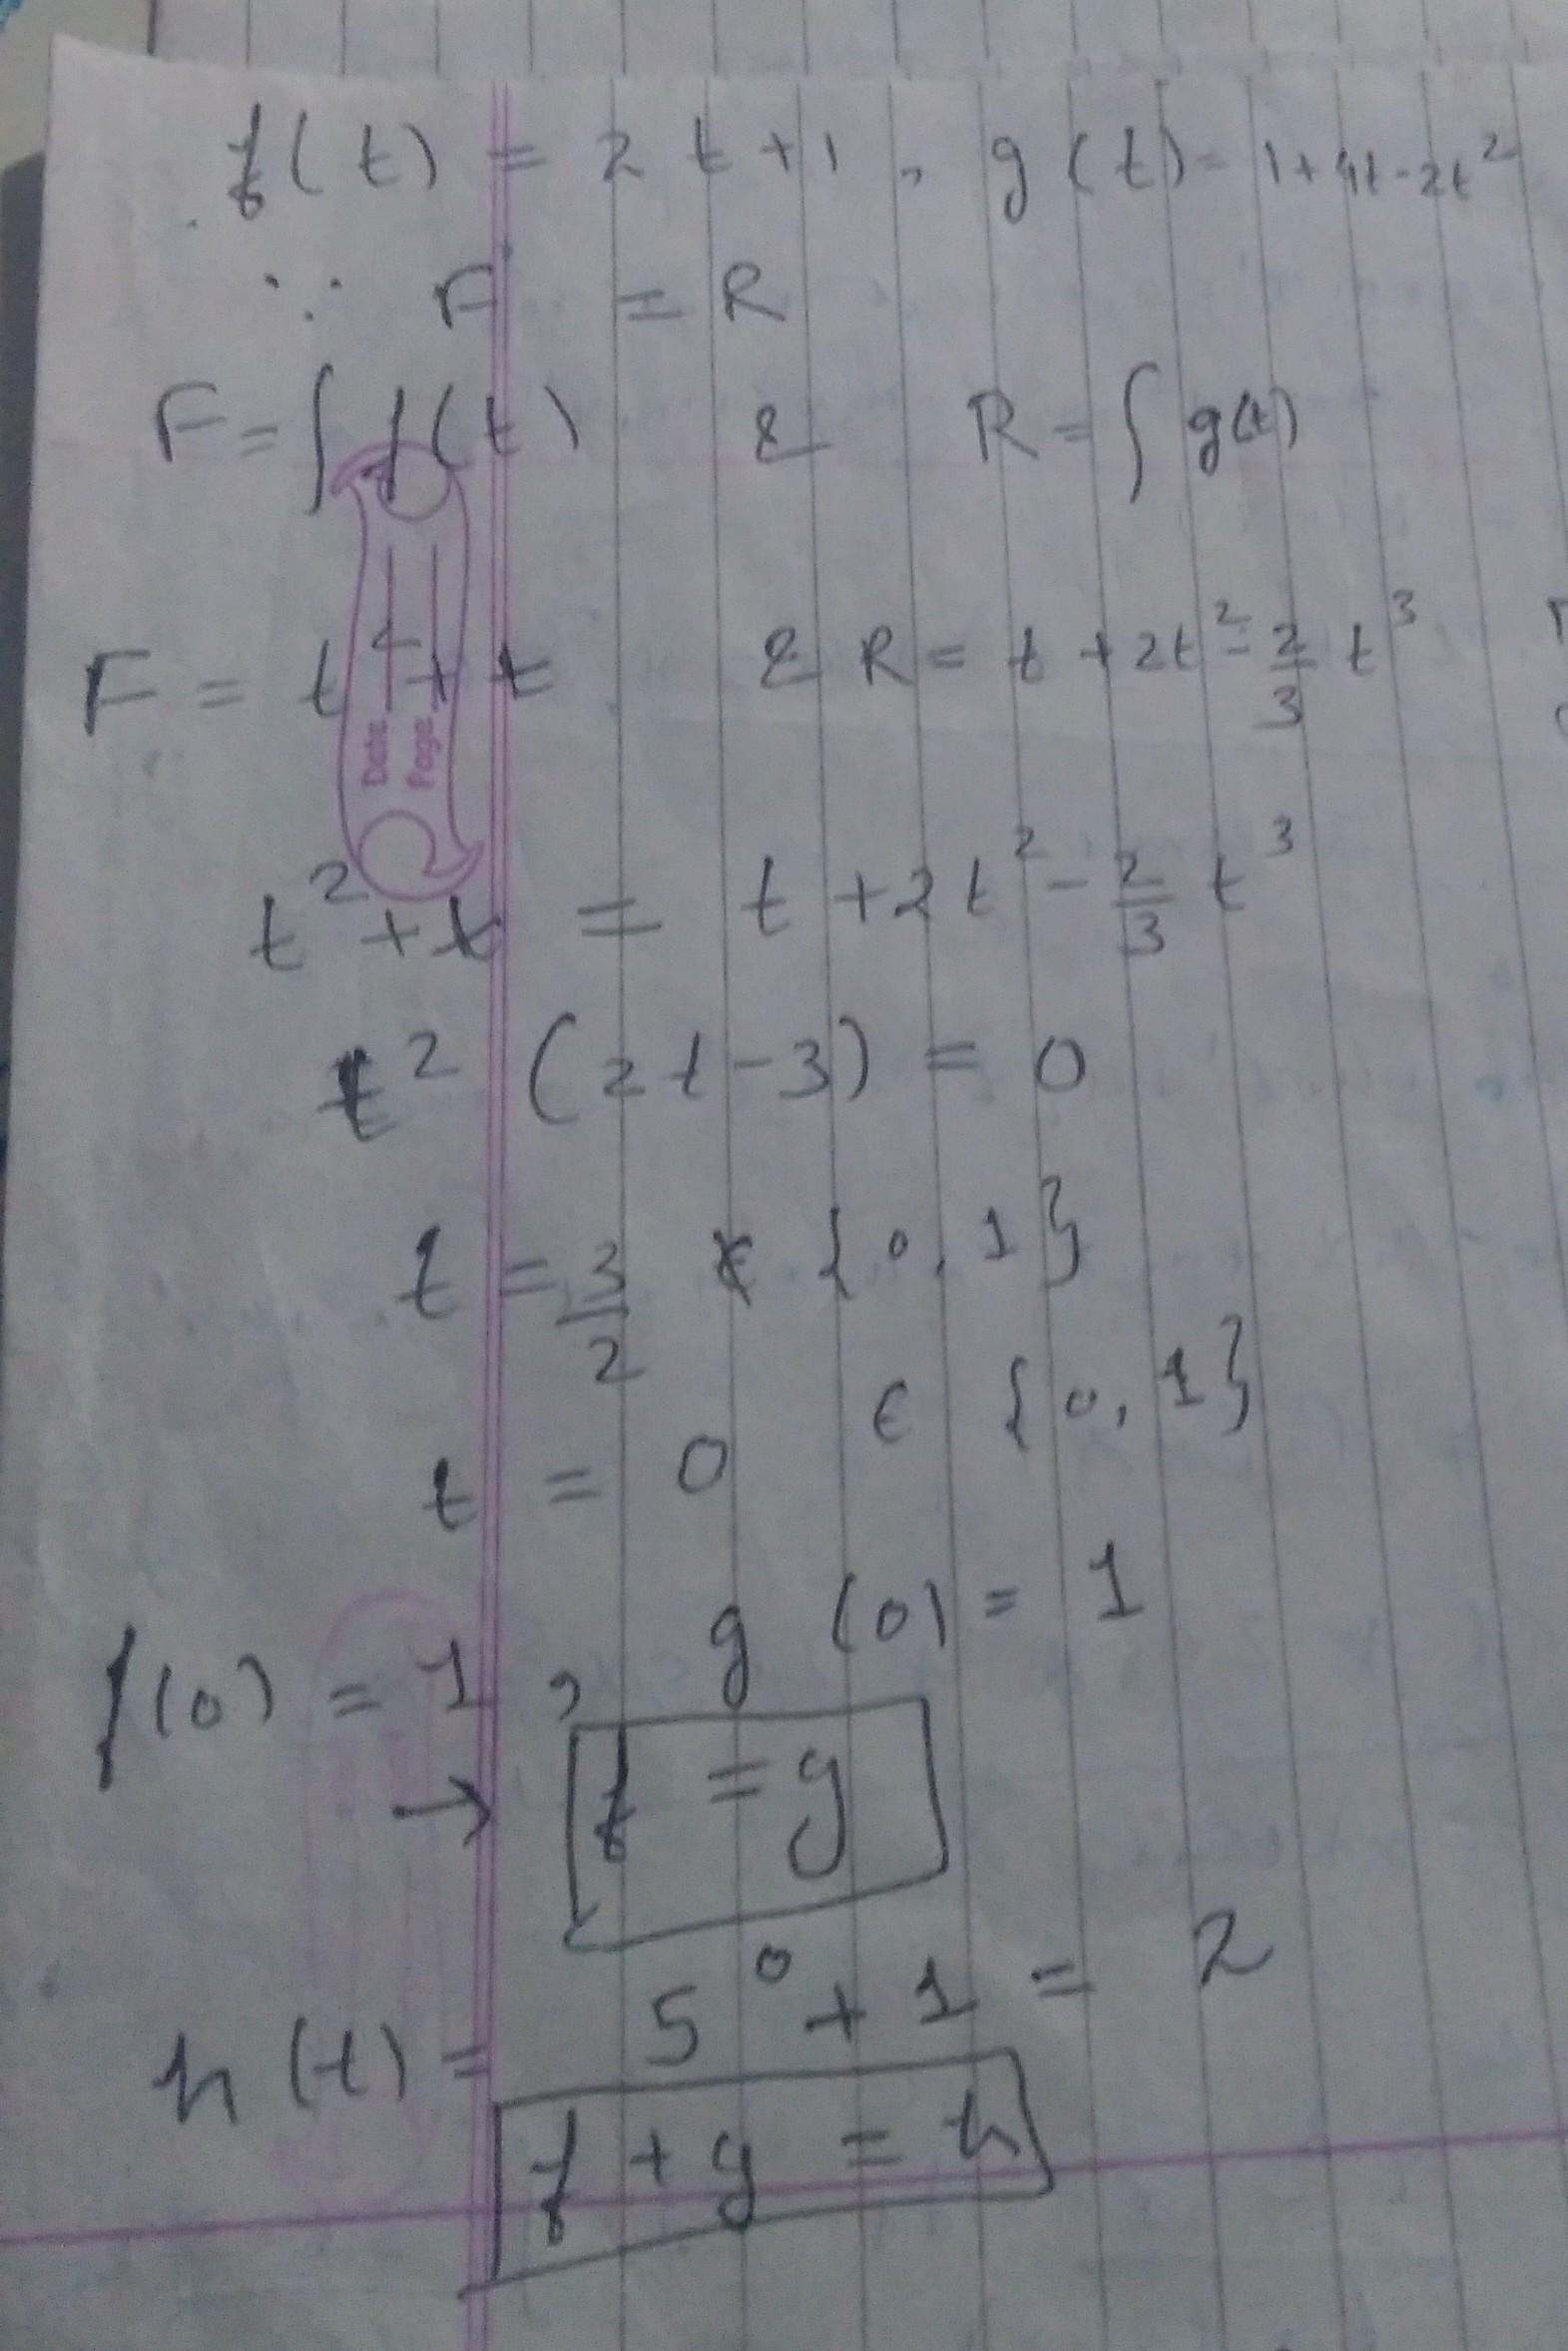 f(t) = 2t+1, g(t) = 1+4t-2t²
∵ F = R
F = ∫ f(t) & R = ∫ g(t)
Date
Page
F = t² + t & R = t + 2t² - 2/3 t³
t² + t = t + 2t² - 2/3 t³
t² (2t-3) = 0
t = 3/2 ∉ {0, 1}
t = 0 ∈ {0, 1}
f(0) = 1, g(0) = 1
→ f = g
h(t) = 5⁰ + 1 = 2
f + g = h